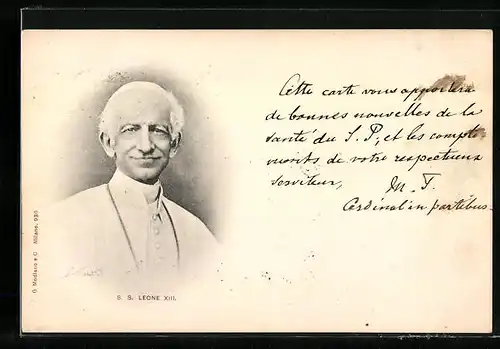 Cette carte vous apportera
de bonnes nouvelles de la
santé du S. P., et les
de votre respectueux
serviteur,
M. F.
Cardinal in partibus.
S. S. LEONE XIII.
G. Modiano e C. Milano. 930